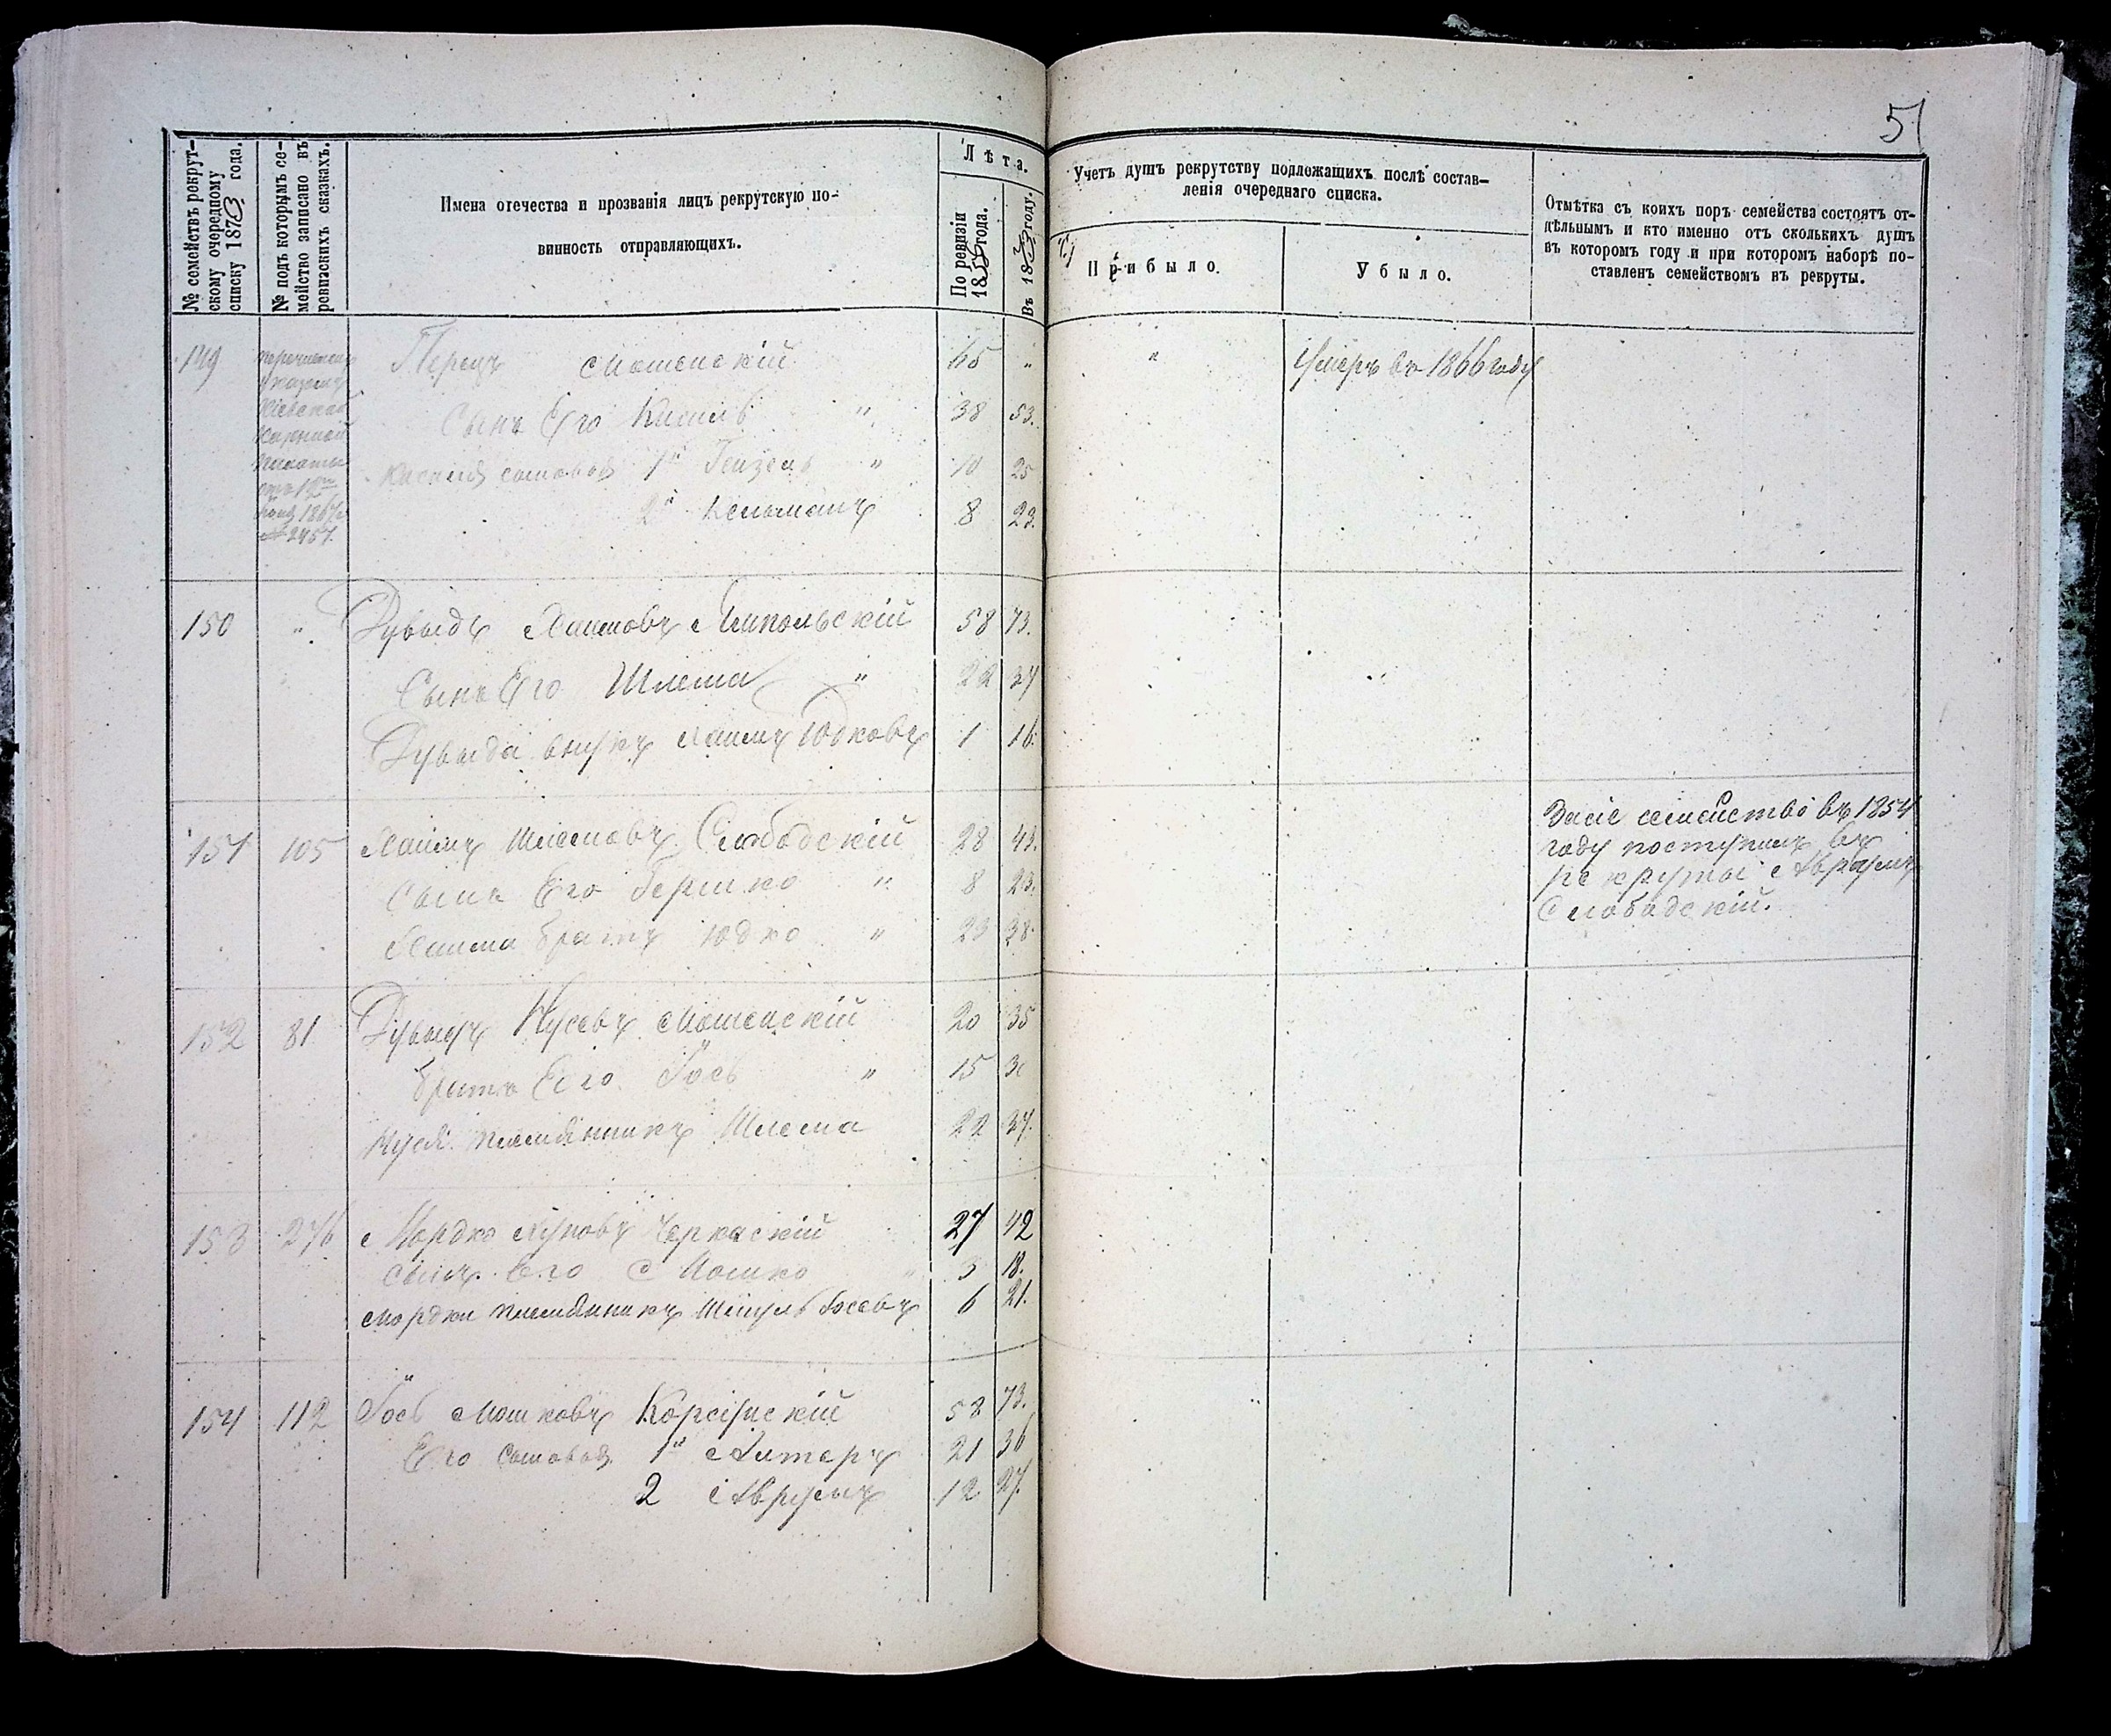 51
№ семействъ рекрут-
скому очередному
списку 1873 года.
№ подъ которымъ се-
мейство записано въ
ревизскихъ сказкахъ.
Имена отечества и прозванія лицъ рекрутскую по-
винность отправляющихъ.
Лѣта.
По ревизіи
1858 года.
Въ 1873 году.
Учетъ душъ рекрутству подлежащихъ послѣ состав-
ленія очереднаго списка.
Прибыло.
Убыло.
Отмѣтка съ коихъ поръ семейства состоятъ от-
дѣльнымъ и кто именно отъ сколькихъ душъ
въ которомъ году и при которомъ наборѣ по-
ставленъ семействомъ въ рекруты.
149 Перецъ Мошенскій 65 " " Умеръ въ 1866 году
Кіевской
Казенной
Палаты
№ 2457.
Сынъ Его Кисиль " 38 53.
Кисиля сыновья 1й Гейзель " 10 25
2й Кельманъ 8 23.
150 " Дувыдъ Хаимовъ Липольскій 58 73.
Сынъ Его Шлема " 22 37
Дувыда внукъ Хаимъ Юдковъ 1 16.
151 105 Хаимъ Шлемовъ Слободскій 28 43.
Сынъ Его Гершко " 8 23.
Хаима братъ Юдко " 23 38.
семейство въ 1854
году поступилъ въ
рекруты Аврумъ
Слободскій.
152 81 Дувыдъ Нусевъ Мошенскій 20 35
Братъ Его Іось " 15 30
Нуся племянникъ Шлема 22 37.
153 276 Мордко Луповъ Черкаскій 27 42
Сынъ Его Мошко " 3 18.
Мордки племянникъ Шмуль Іосевъ 6 21.
154 112 Іось Мошковъ Корсунскій 58 73.
Его сыновья 1й Алтеръ 21 36
2 Аврумъ 12 27.